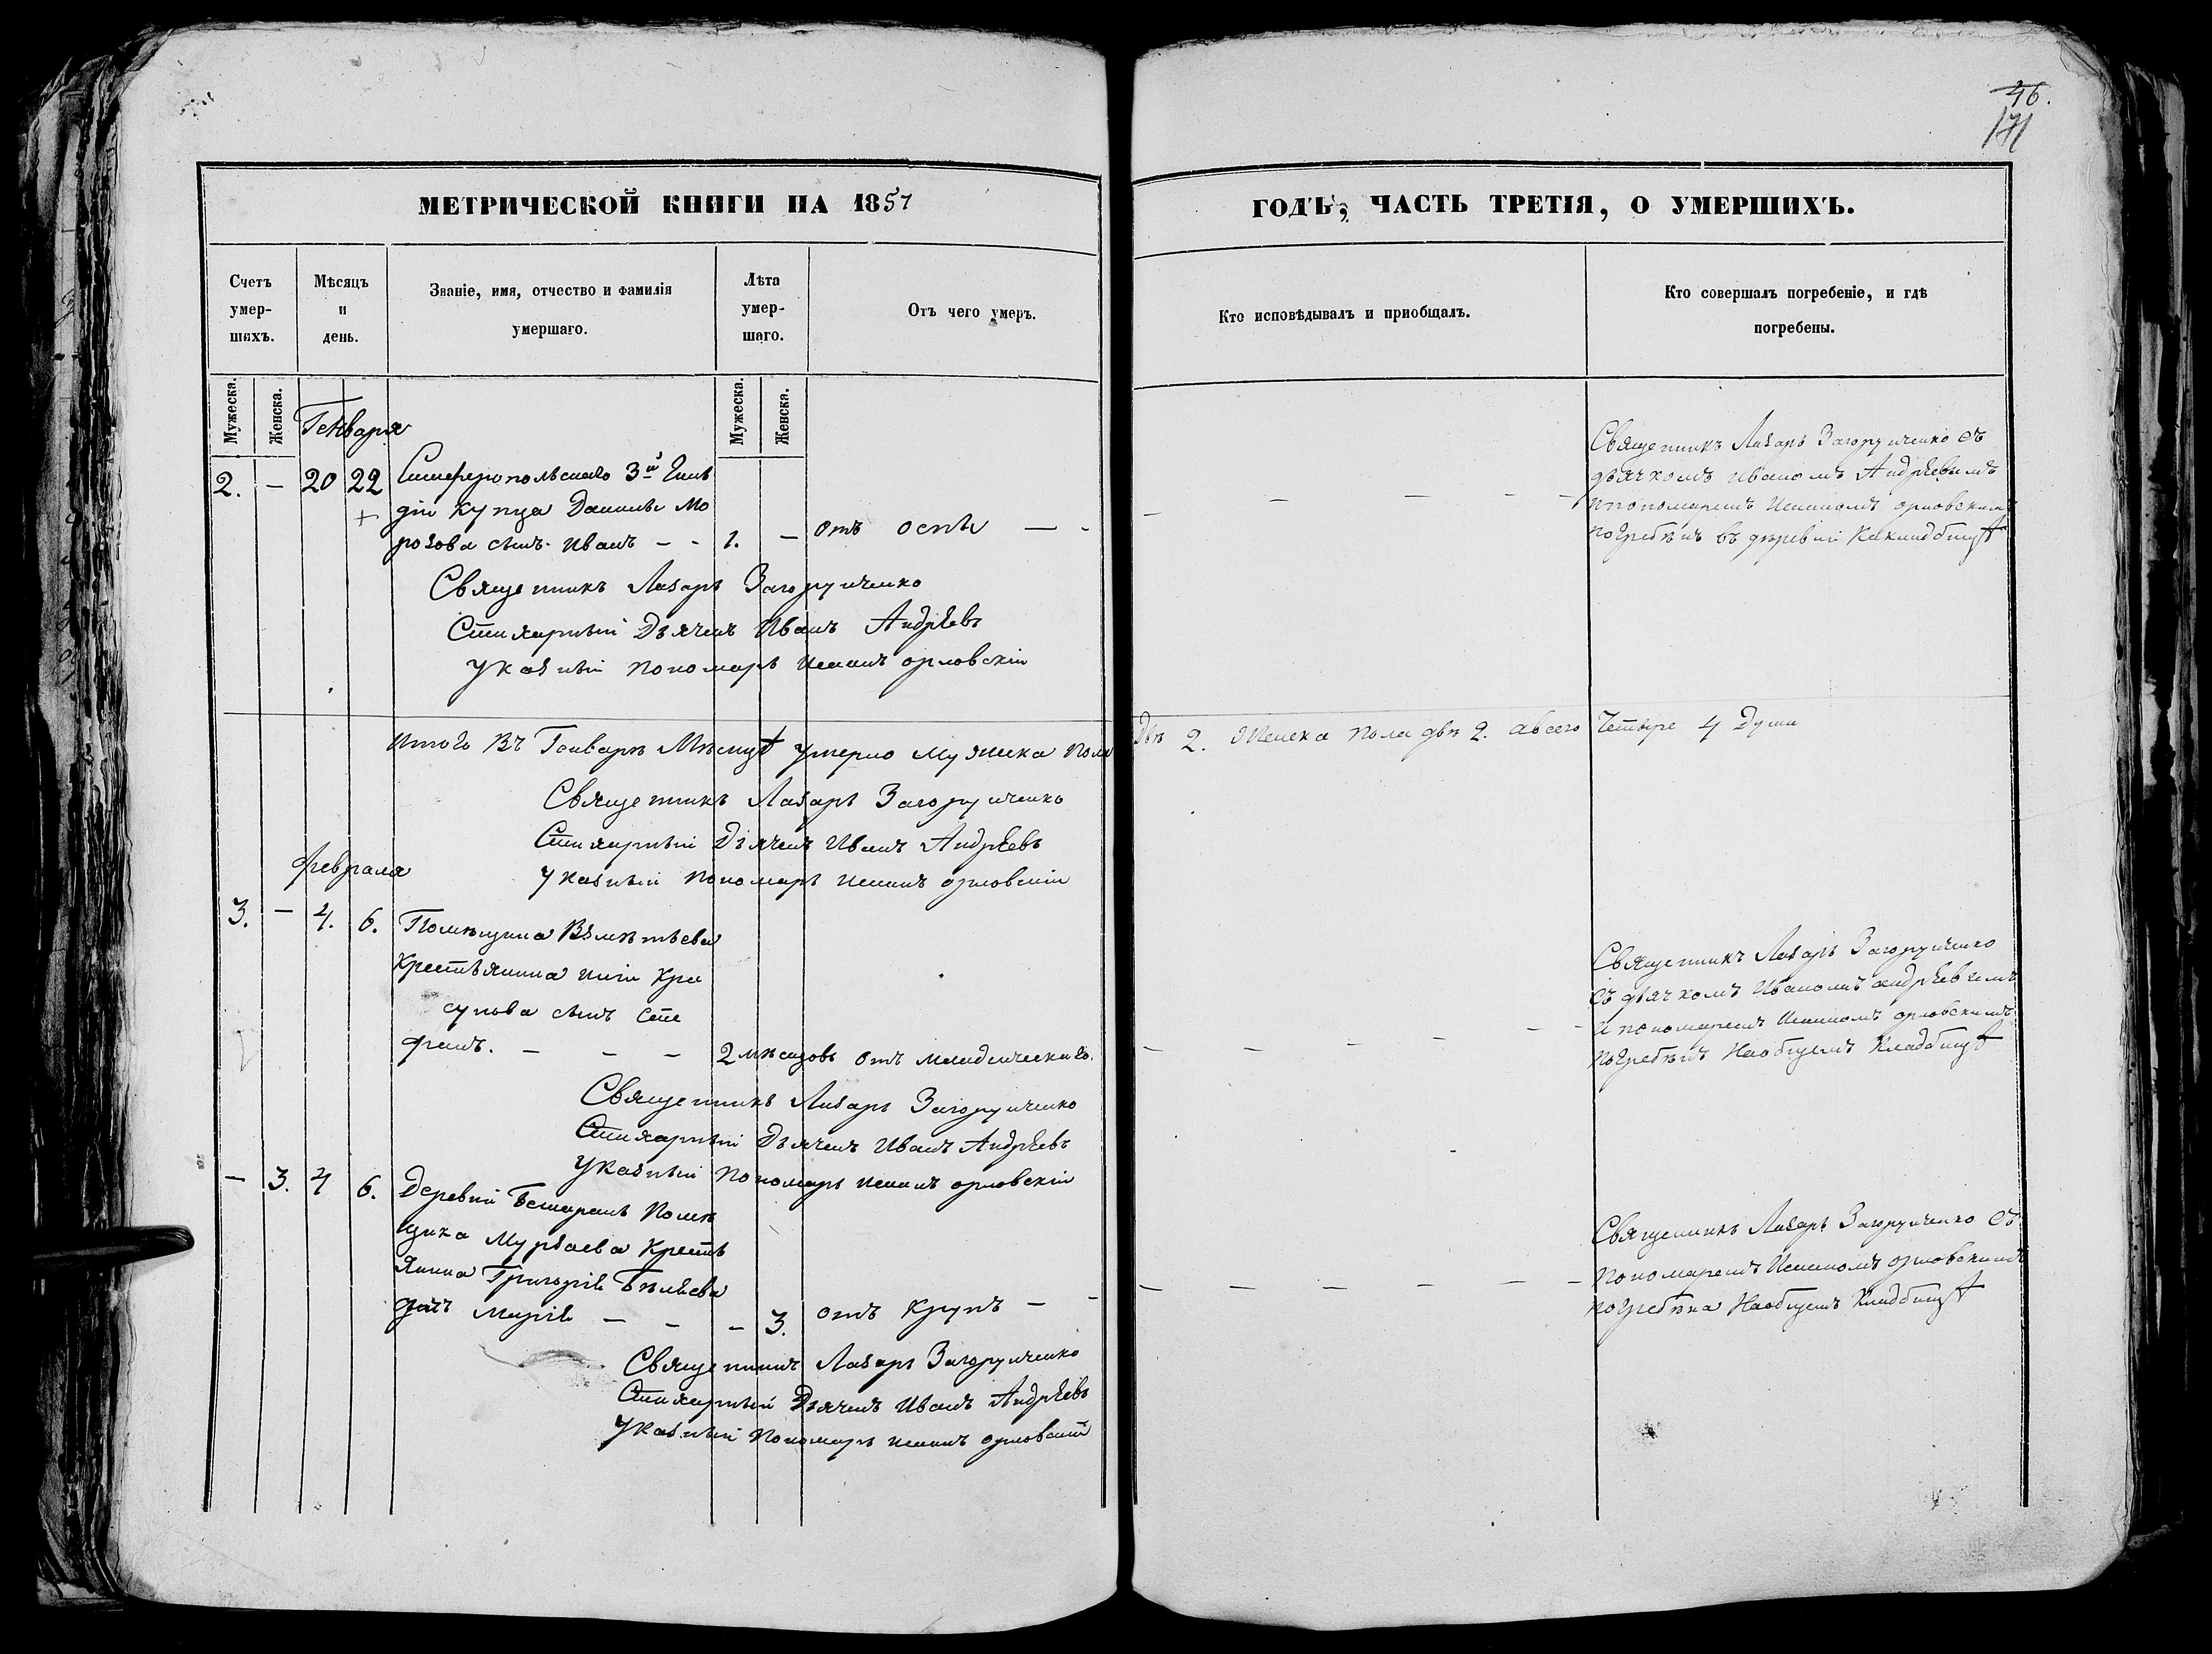 46.
171
МЕТРИЧЕСКОЙ КНИГИ НА 1857
ГОДЪ, ЧАСТЬ ТРЕТІЯ, О УМЕРШИХЪ.
Счетъ умер-шихъ.
Мѣсяцъ и день.
Званіе, имя, отчество и фамилія умершаго.
Лѣта умер-шаго.
Отъ чего умеръ.
Кто исповѣдывалъ и приобщалъ.
Кто совершалъ погребеніе, и гдѣ погребены.
Мужеска. Женска.
Мужеска. Женска.
Генваря
2. — 20 22 Симферопольскаго 3й Гиль
діи купца Даниила Мо
розова сынъ Иванъ — - 1. — отъ оспы — -
Священникъ Лазарь Загоруиченко съ
дьячкомъ Иваномъ Андрѣевымъ
и пономаремъ орловскимъ
погребѣнъ въ деревни
Священникъ Лазарь Загоруиченко
Стихарный Дьячекъ Иванъ Андрѣевъ
Указный Пономарь орловскій
Итого Въ Генварѣ Мѣсяцѣ умерло Мужеска пола
Двѣ 2. Женска пола двѣ 2. а всего Четыре 4 Души
Священникъ Лазарь Загоруиченко
Стихарный Дьячекъ Иванъ Андрѣевъ
Указный Пономарь орловскій
Февраля
3. — 4. 6. Помѣщика
крестьянина
сынъ Сте
фанъ. — — — 2 мѣсяцовъ отъ младенческаго.
Священникъ Лазарь Загоруиченко
съ дьячкомъ Иваномъ Андрѣевымъ
и пономаремъ орловскимъ
погребѣнъ На общемъ Кладбищѣ
Священникъ Лазарь Загоруиченко
Стихарный Дьячекъ Иванъ Андрѣевъ
Указный Пономарь орловскій
— 3. 4 6. Деревни Бешаранъ Помѣ
щика Мурзаева Кресть
янина Григорія Бѣляева
дочь Марія — — — 3. отъ крупъ — -
Священникъ Лазарь Загоруиченко съ
Пономаремъ орловскимъ
погребѣна На общемъ Кладбищѣ
Священникъ Лазарь Загоруиченко
Стихарный Дьячекъ Иванъ Андрѣевъ
Указный Пономарь орловскій